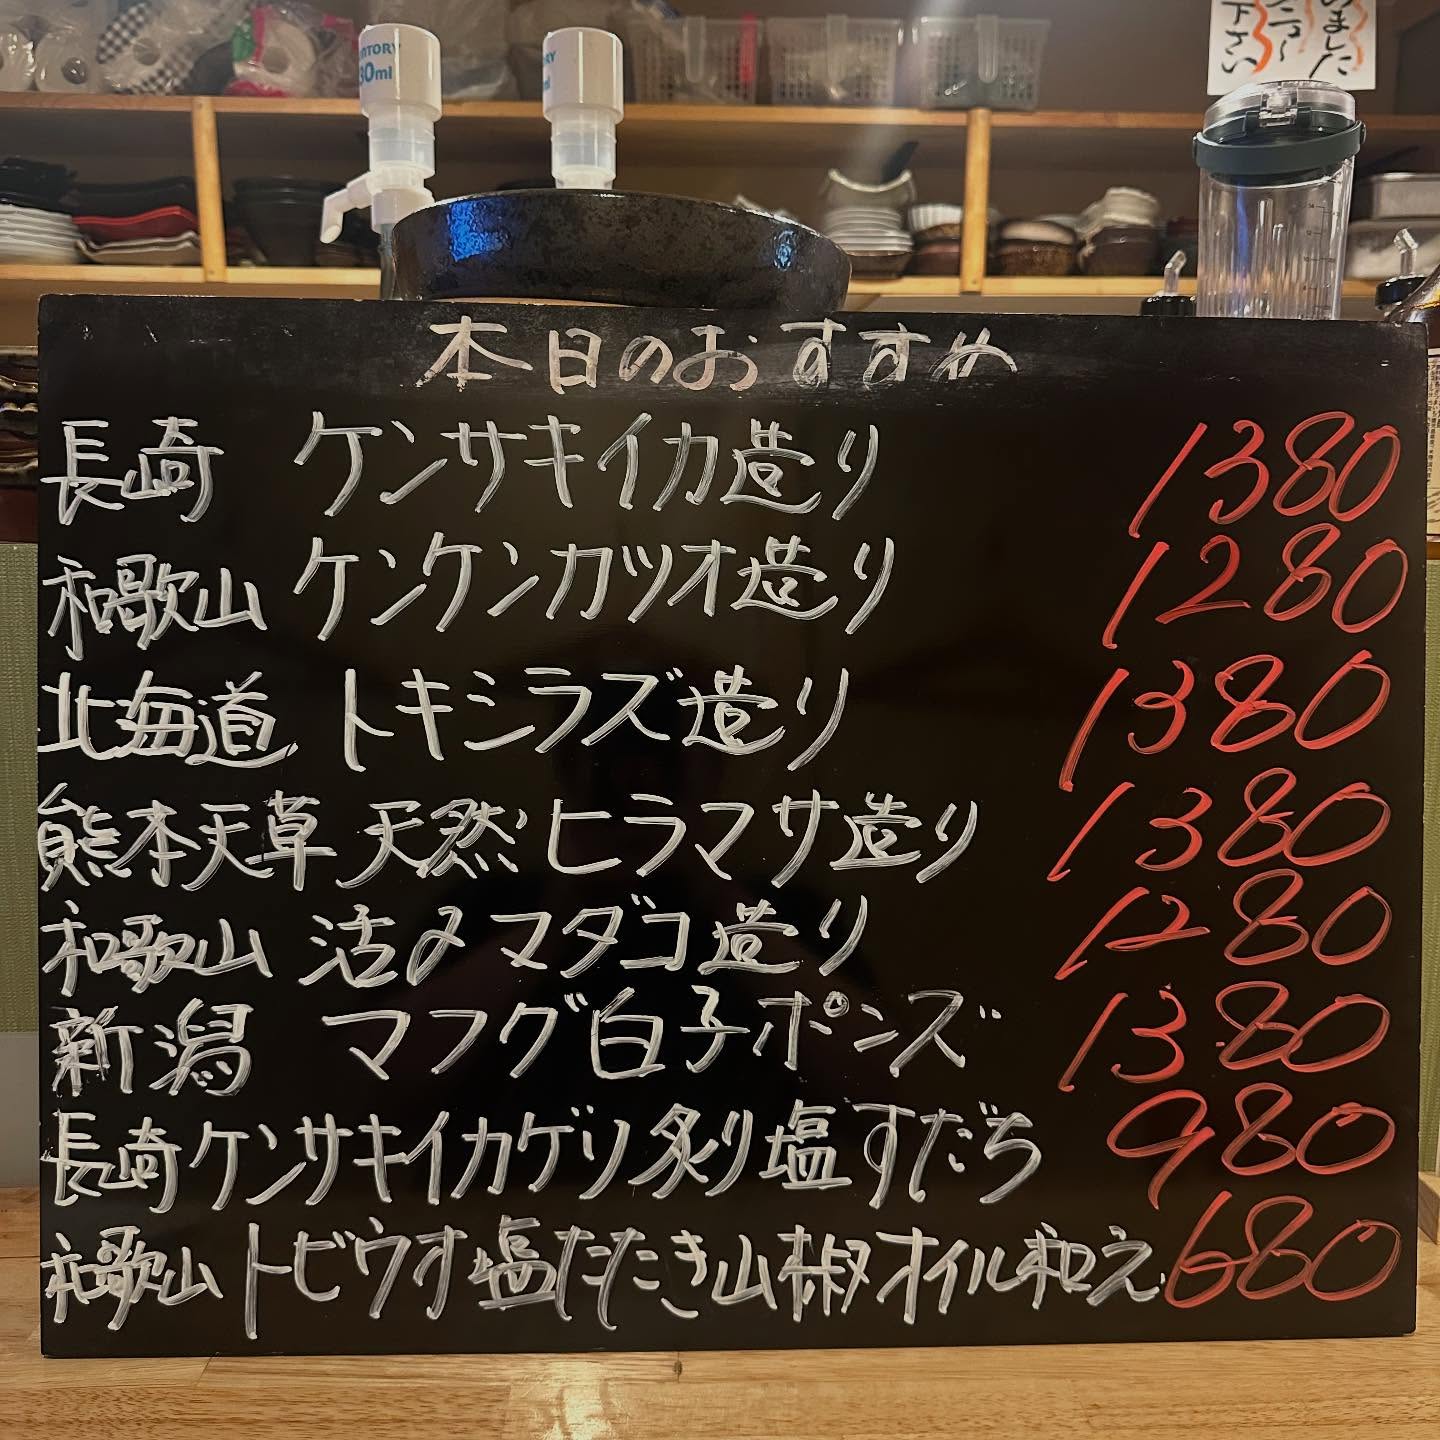 ました
ニュ～
下さい
NTORY
30ml
本日のおすすめ
長崎 ケンサキイカ造り 1380
和歌山 ケンケンカツオ造り 1280
北海道 トキシラズ造り 1380
熊本天草 天然ヒラマサ造り 1380
和歌山 活〆マダコ造り 1280
新潟 マフグ白子ポンズ 1380
長崎ケンサキイカゲソ炙り塩すだち 980
和歌山トビウオ塩たたき山椒オイル和え 680